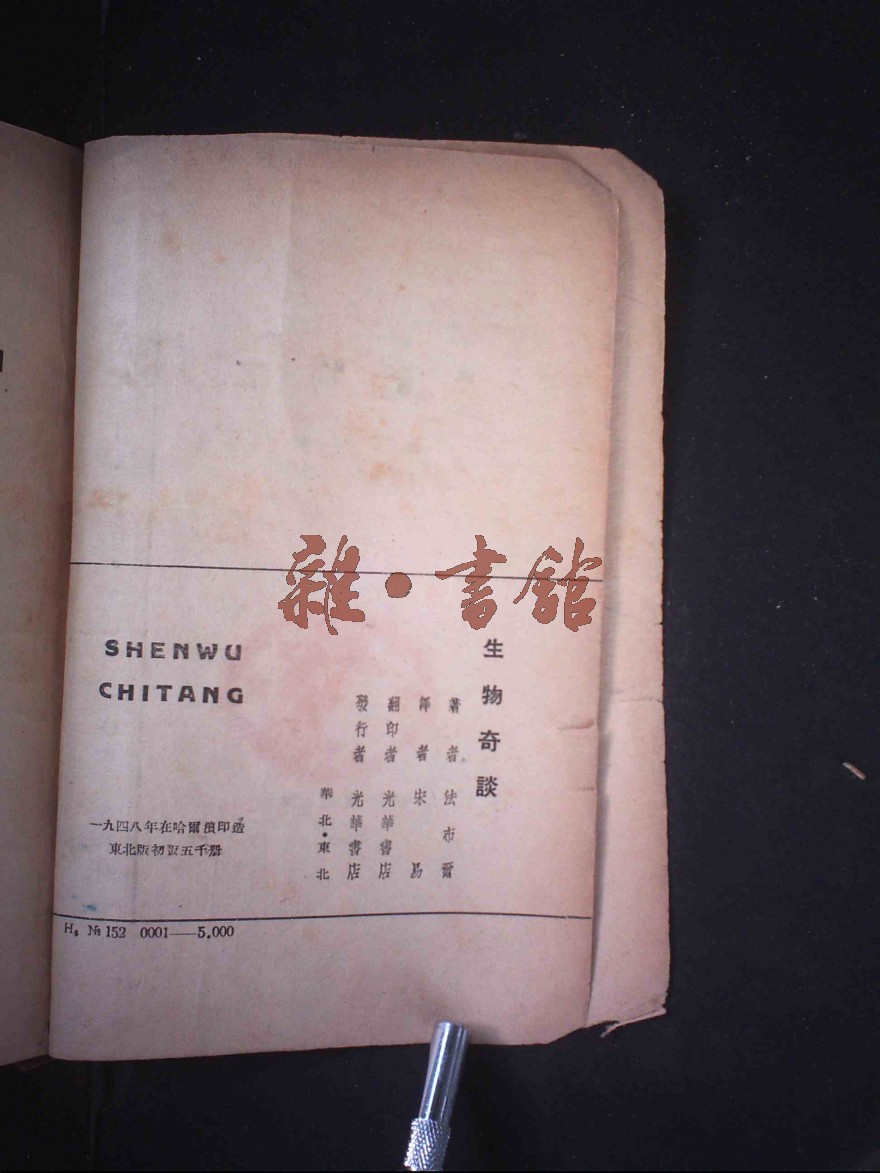 雜·書館
生物奇談
著者 法布爾
譯者 宋易
翻印者 光華書店
發行者 光華書店
華北·東北
SHENWU
CHITANG
一九四八年在哈爾濱印造
東北版初版五千册
H₄ № 152 0001——5,000